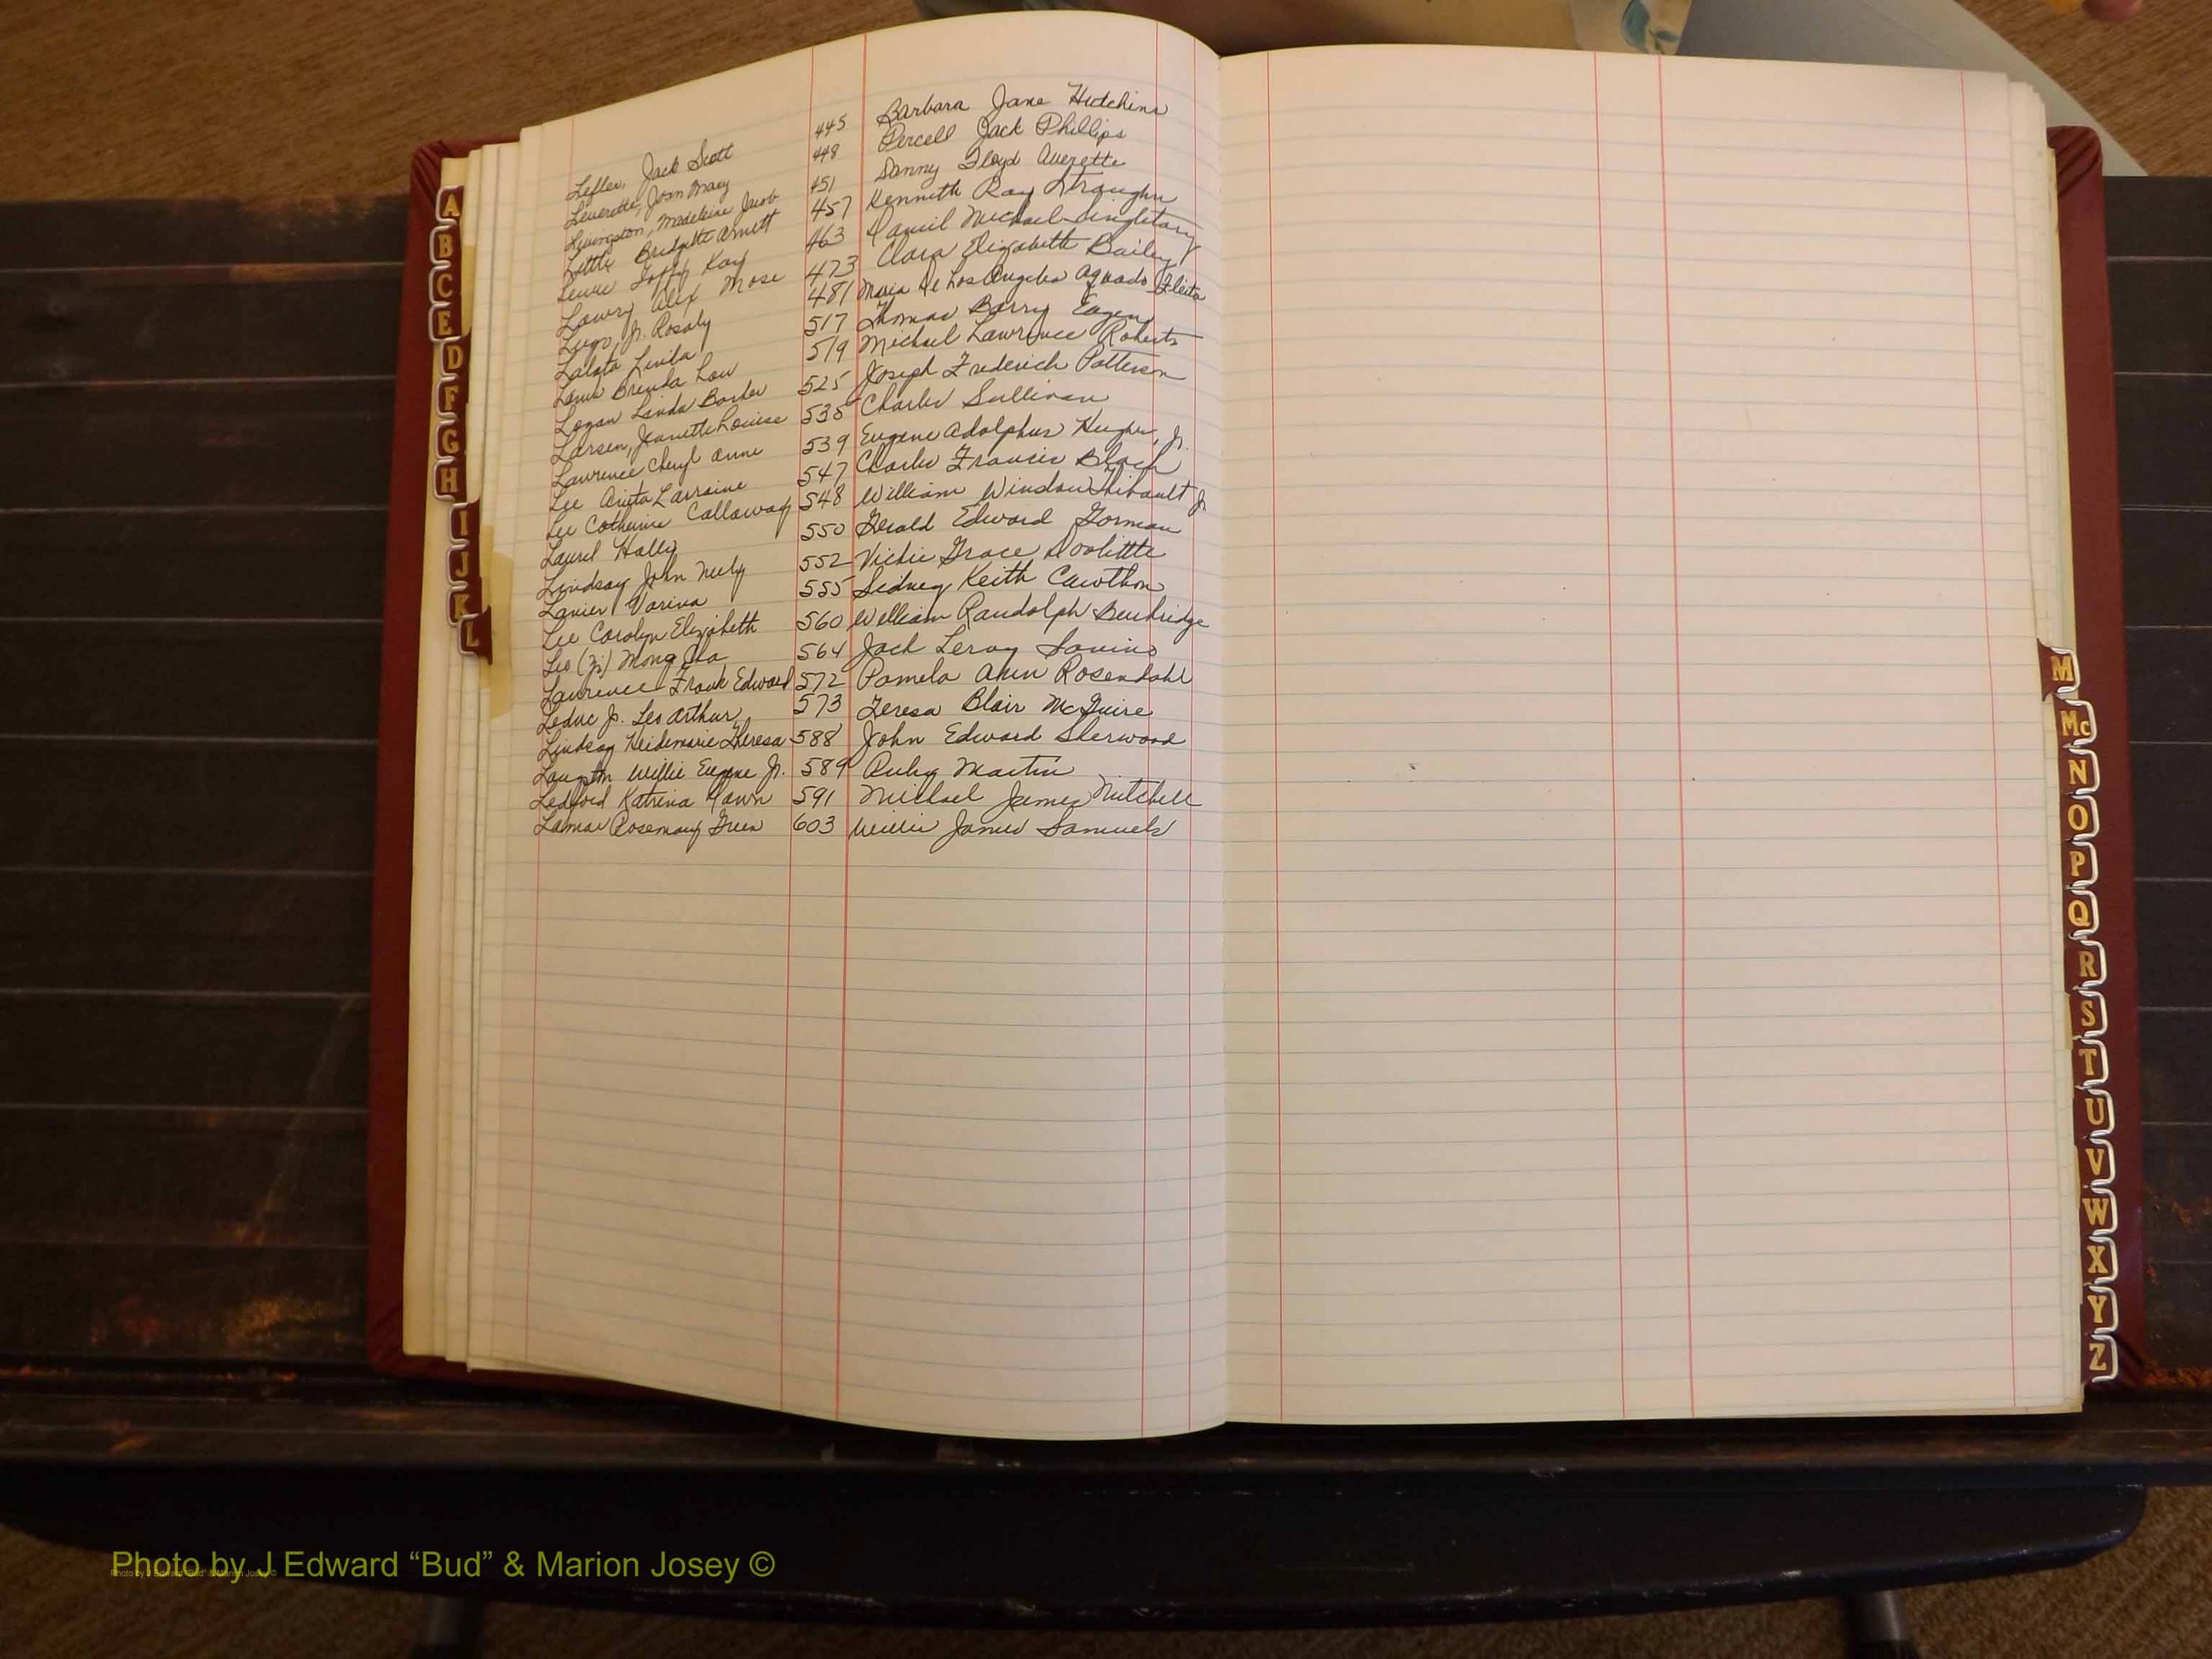 Lefler, Jack Scott 445 Barbara Jane Hutchins
Leverette, Joan Mary 448 Percell Jack Phillips
Livingston, Madeleine Jacob 451 Danny Floyd Averette
Little Bridgette Arnett 457 Kenneth Ray Straughn
Kay 463 Daniel Michael Singletary
Lowry Alex Mose 473 Clara Elizabeth Bailey
Lugo, Jr. Rosaly 481 Maria De Los Angeles Aguado
Linda 517 Thomas Barry Eugene
Brenda Lou 519 Michael Lawrence Roberts
Logan Linda Barber 525 Joseph Frederich Patterson
Larsen, Jeanette Louise 535 Charles Sullivan
Lawrence Cheryl Anne 539 Eugene Adolphus Hughes, Jr.
Lee Anita Larraine 547 Charles Francis Black
Lee Catherine Callaway 548 William Window Thibault Jr
Laurel Hally 550 Gerald Edward Gorman
Lindsay John Neely 552 Vickie Grace Doolittle
Lanier Varina 555 Sidney Keith Cawthon
Lee Carolyn Elizabeth 560 William Randolph
Mong 564 Jack Leroy Savino
Laurence Frank Edward 572 Pamela Ann Rosendahl
Leduc Jr. Leo Arthur 573 Teresa Blair McGuire
Lindsay Heidemarie Theresa 588 John Edward Sherwood
Langston Willie Eugene Jr. 589 Ruby Martin
Ledford Katrina Dawn 591 Michael James Mitchell
Lamar Rosemary Green 603 Willie James Samuels
A
B
C
E
D
F
G
H
I
J
K
L
M
Mc
N
O
P
Q
R
S
T
U
V
W
X
Y
Z
Photo by J Edward “Bud” & Marion Josey ©
Photo by J Edward “Bud” & Marion Josey ©